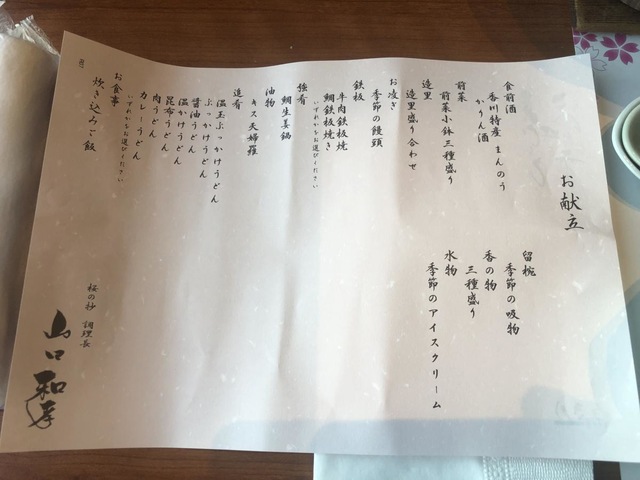 お献立
食前酒
香川特産 まんのう
かりん酒
前菜
前菜小鉢三種盛り
造里
造里盛り合わせ
お凌ぎ
季節の饅頭
鉄板
牛肉鉄板焼
鯛鉄板焼き
いずれかをお選びください
強肴
鯛生姜鍋
油物
キス天婦羅
追肴
温玉ぶっかけうどん
ぶっかけうどん
醤油うどん
温かけうどん
昆布うどん
肉うどん
カレーうどん
いずれかをお選びください
お食事
炊き込みご飯
留椀
季節の吸物
香の物
三種盛り
水物
季節のアイスクリーム
桜の抄 調理長
山口和孝